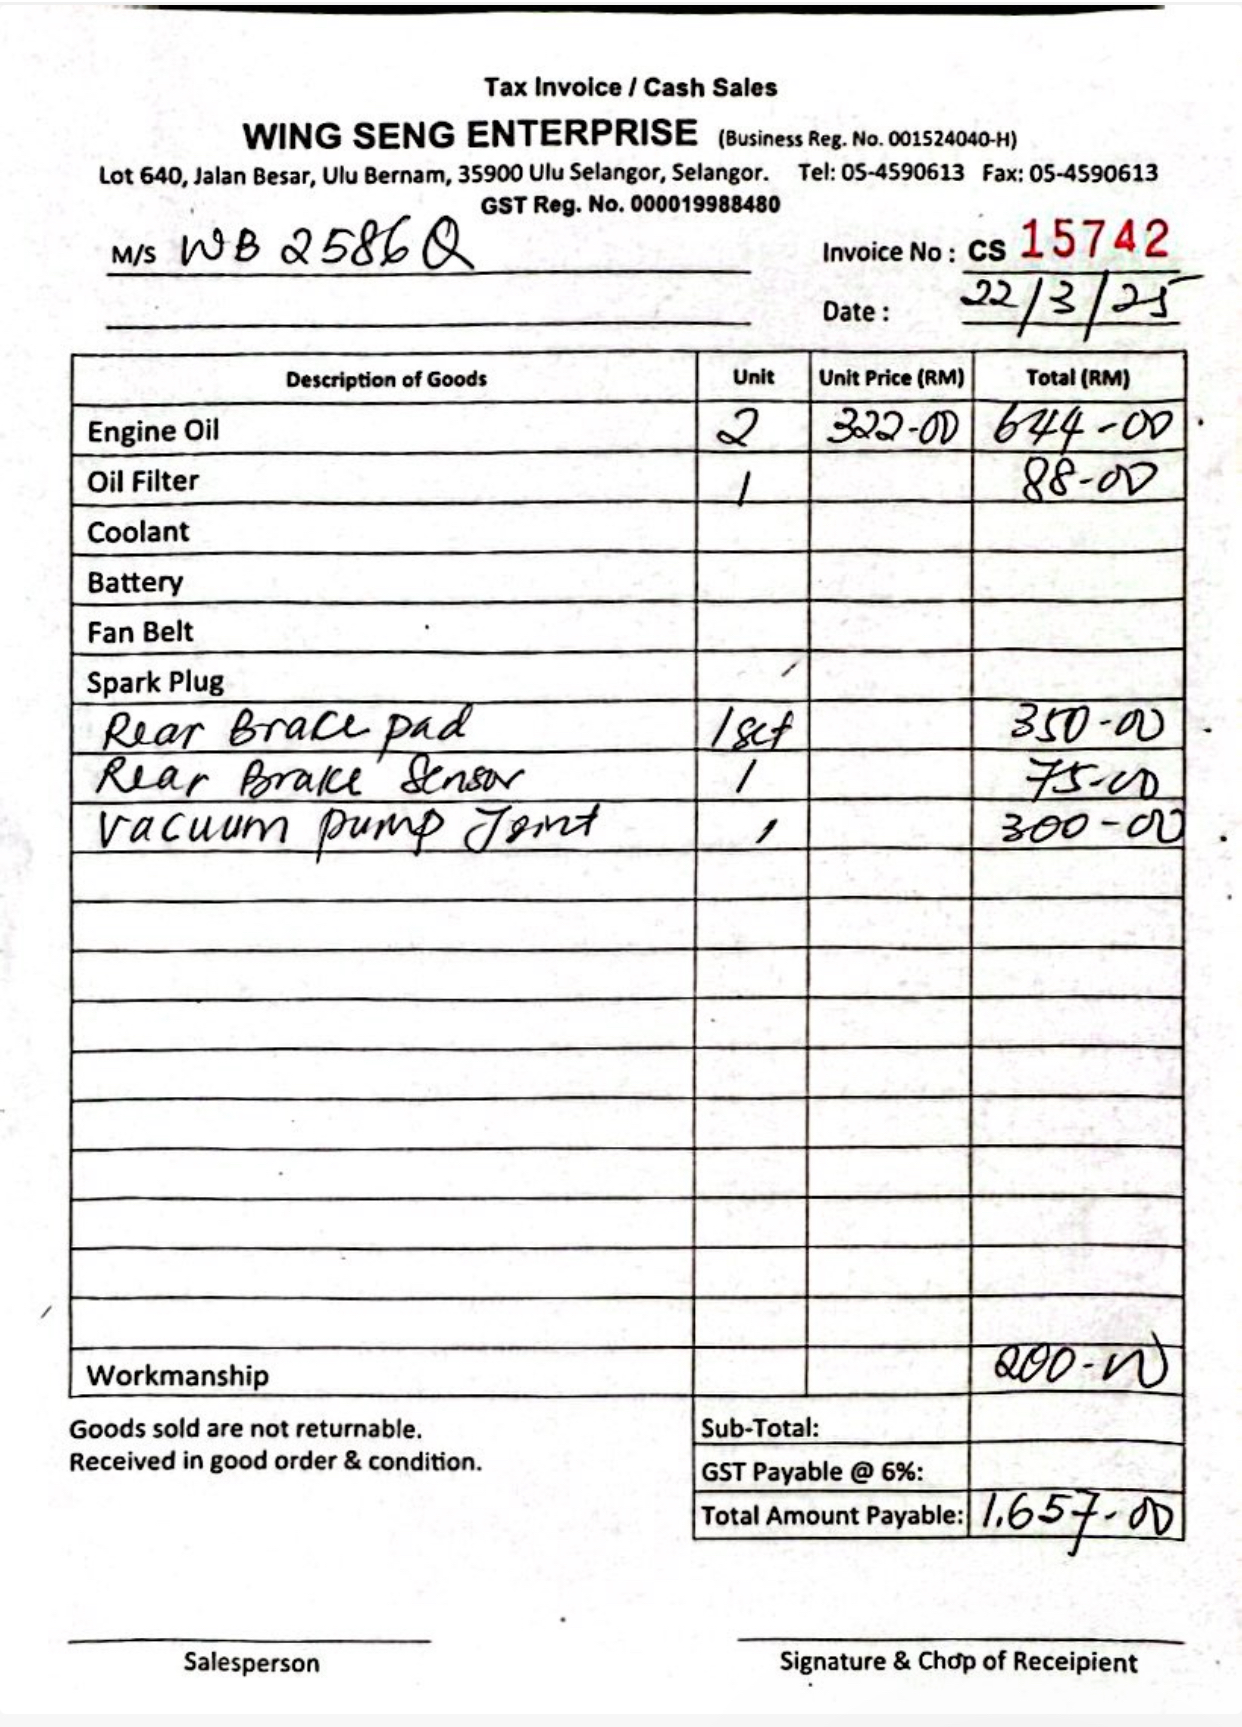 Tax Invoice / Cash Sales
WING SENG ENTERPRISE (Business Reg. No. 001524040-H)
Lot 640, Jalan Besar, Ulu Bernam, 35900 Ulu Selangor, Selangor. Tel: 05-4590613 Fax: 05-4590613
GST Reg. No. 000019988480
M/S WB 2586Q Invoice No : CS 15742
Date : 22/3/25
Description of Goods Unit Unit Price (RM) Total (RM)
Engine Oil 2 322-00 644-00
Oil Filter 1 88-00
Coolant
Battery
Fan Belt
Spark Plug
Rear Brace pad 1 set 350-00
Rear Brake Sensor 1 75-00
Vacuum pump Joint 1 300-00
Workmanship 200-00
Goods sold are not returnable. Sub-Total:
Received in good order & condition. GST Payable @ 6%:
Total Amount Payable: 1,657-00
Salesperson Signature & Chop of Receipient